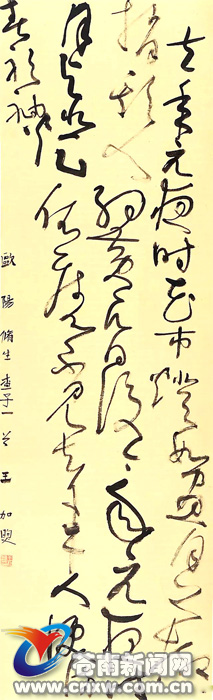 去年元夜时花市燈如晝月上柳
梢頭人約黄昏後今年元夜时
月與燈依舊不見去年人淚濕
春衫袖
歐陽脩生查子一首 王加
苍南新闻网
www.cnxw.com.cn